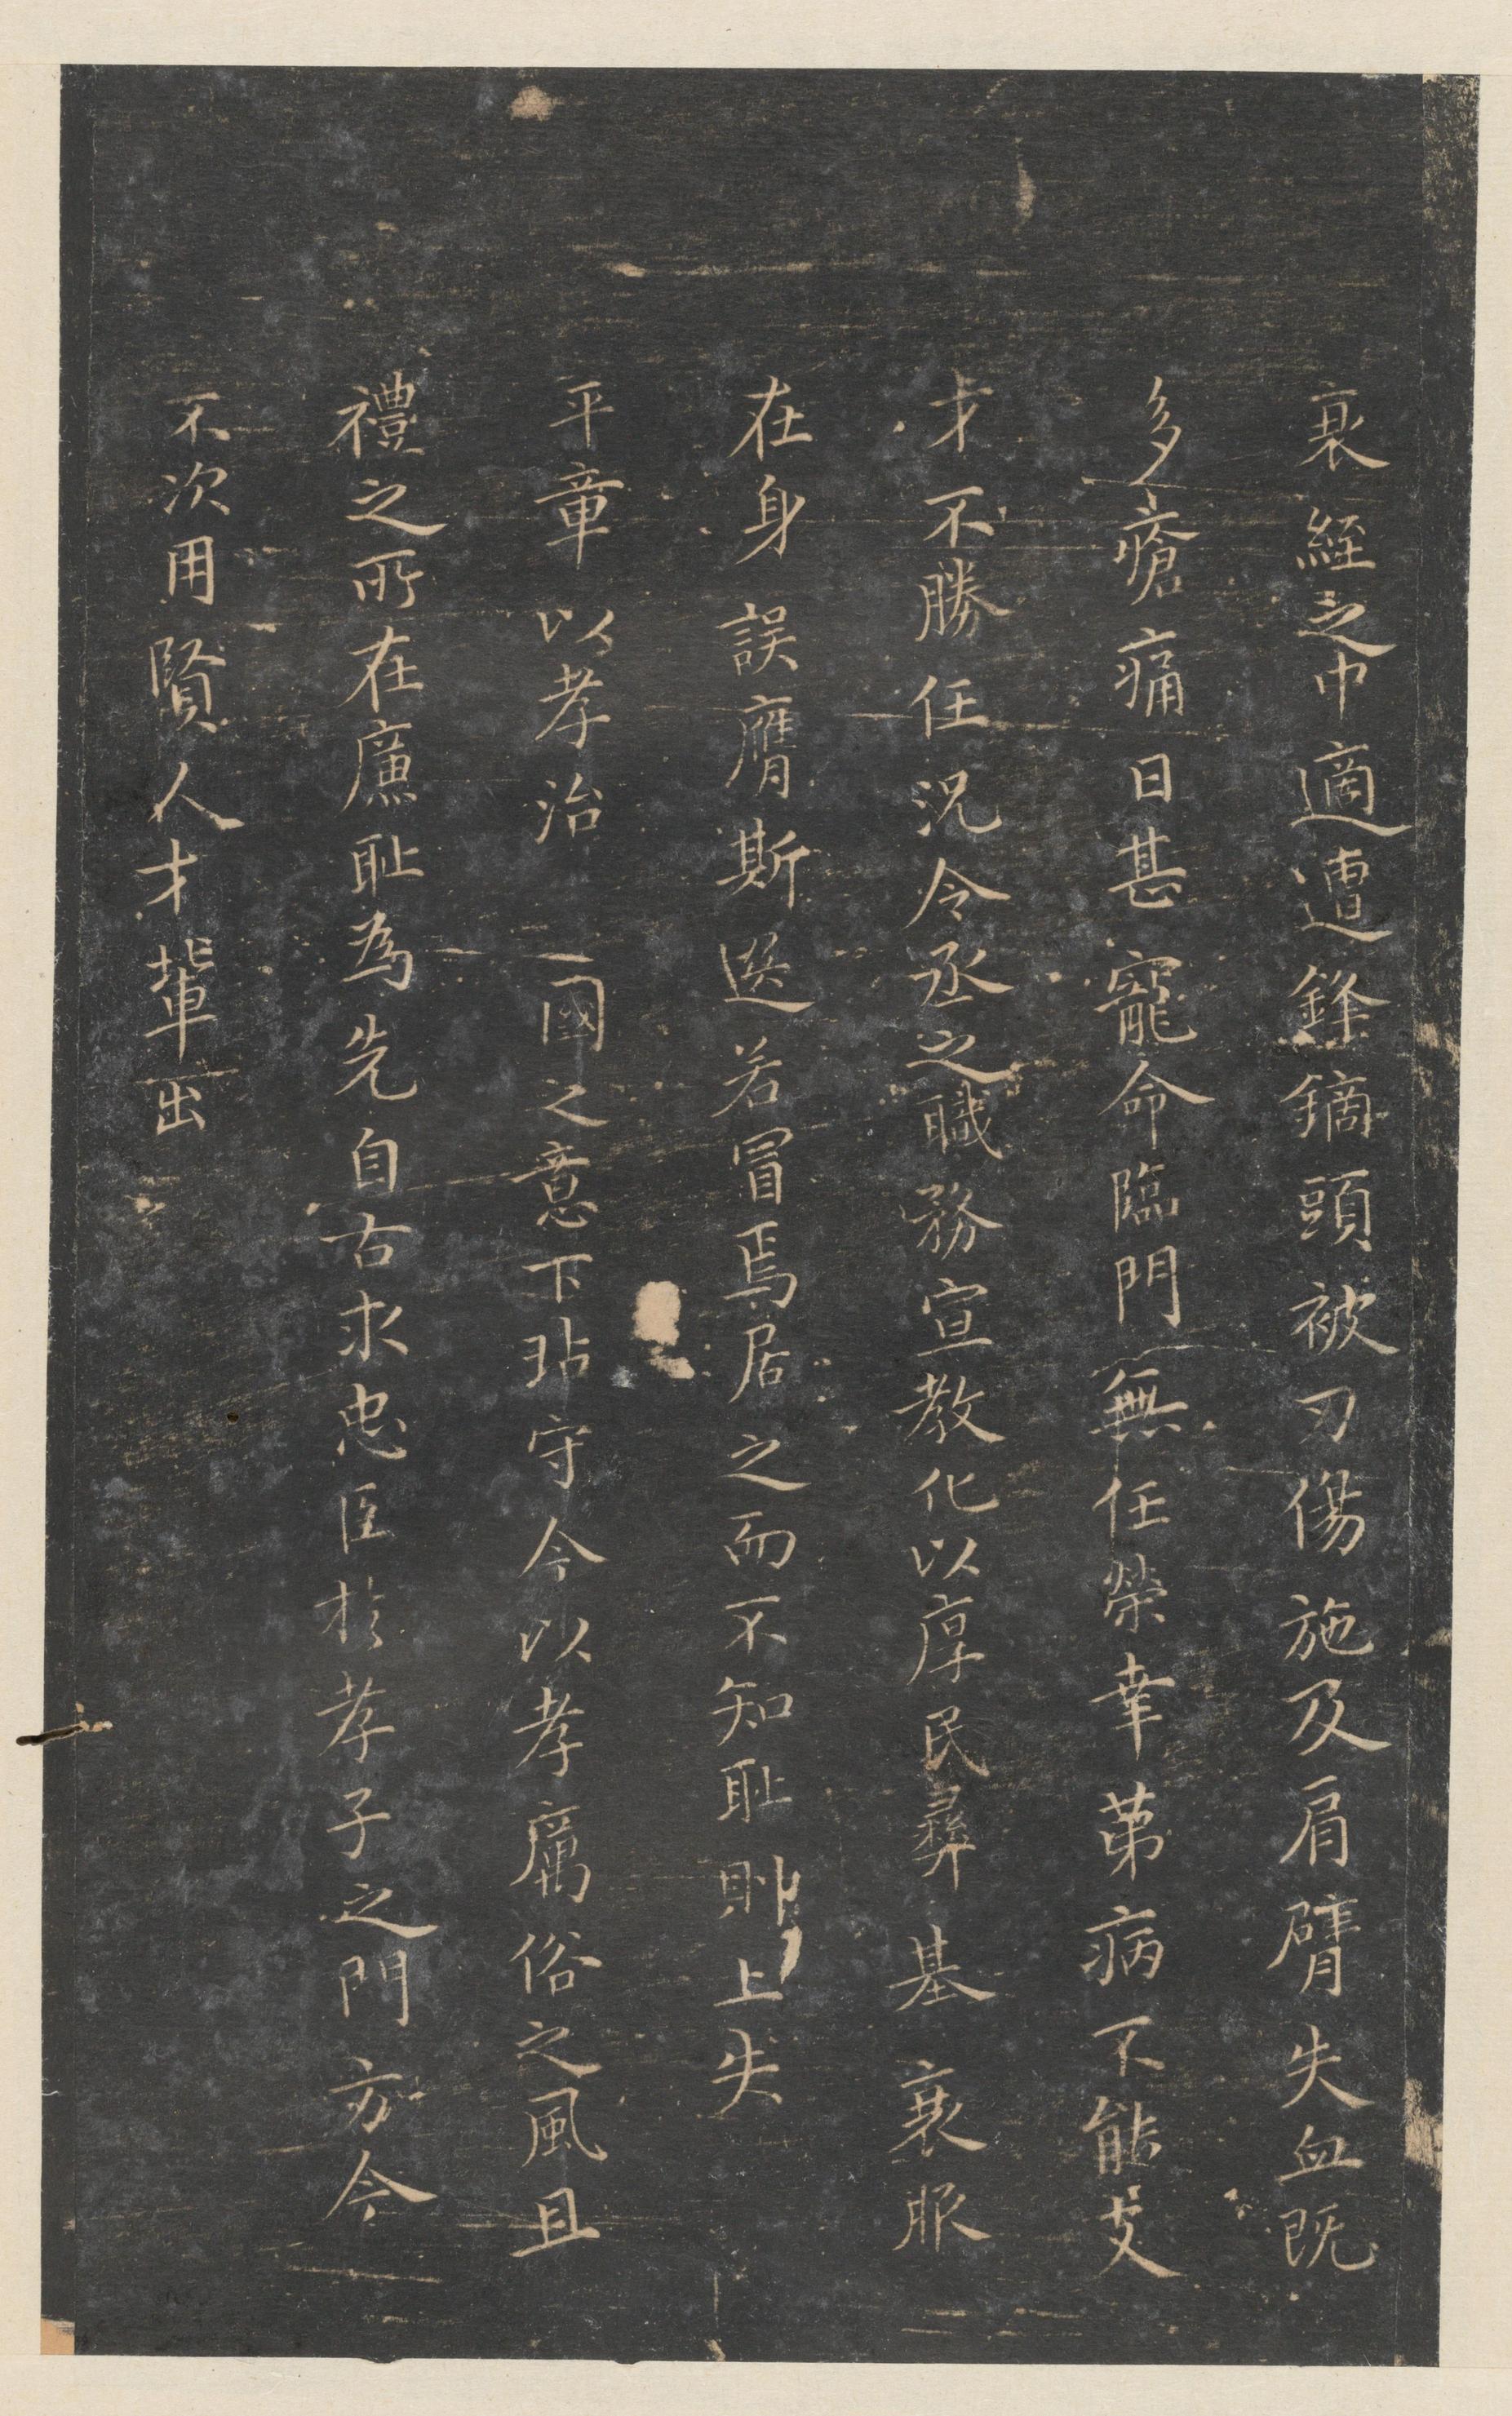 衰絰之中適遭鋒鏑頭被刃傷施及肩臂失血既
多瘡痛日甚寵命臨門無任榮幸苐病不能支
才不勝任況令丞之職務宣教化以厚民彝基衰服
在身誤膺斯選若冒焉居之而不知耻則上失
平章以孝治國之意下玷守令以孝厲俗之風且
禮之所在廉耻為先自古求忠臣於孝子之門方今
不次用賢人才輩出